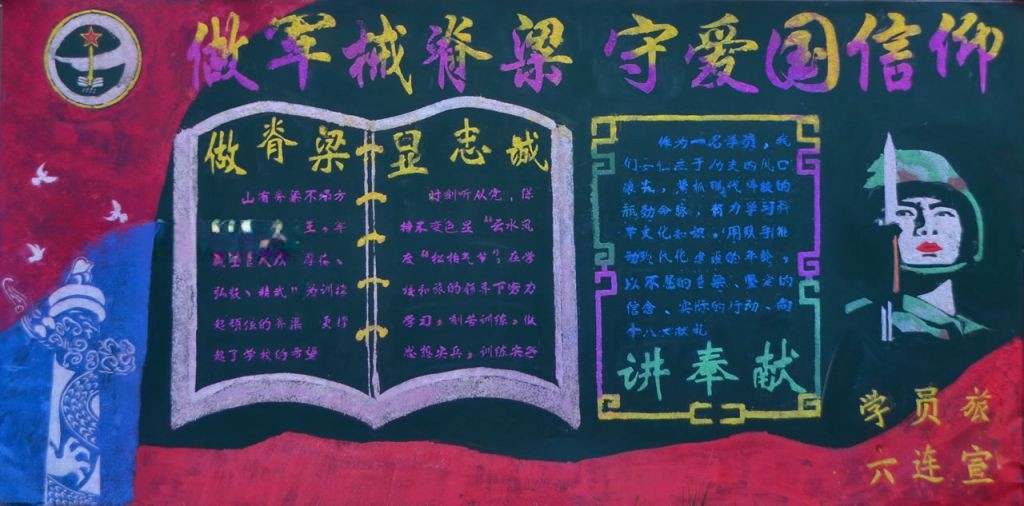 做军械脊梁 守爱国信仰
做脊梁 显志诚
山有脊梁不塌方
王。军
弘毅、精武”为训操
起顿弦的脊梁 更操
起了学校的希望
时刻听从党，保
持本色显“云水风
度”“松柏气节”，在学
校和旅的领导下努力
学习，刻苦训练，做
思想尖兵，训练尖兵
作为一名学员，我
们立于历史的风口
浪尖，掌握现代科技的
脉动命脉，努力学习科
学文化知识。用双手推
动现代化建设的车轮，
以不屈的脊梁、坚定的
信念、实际的行动、向
十八大献礼
讲奉献
学员旅
六连宣